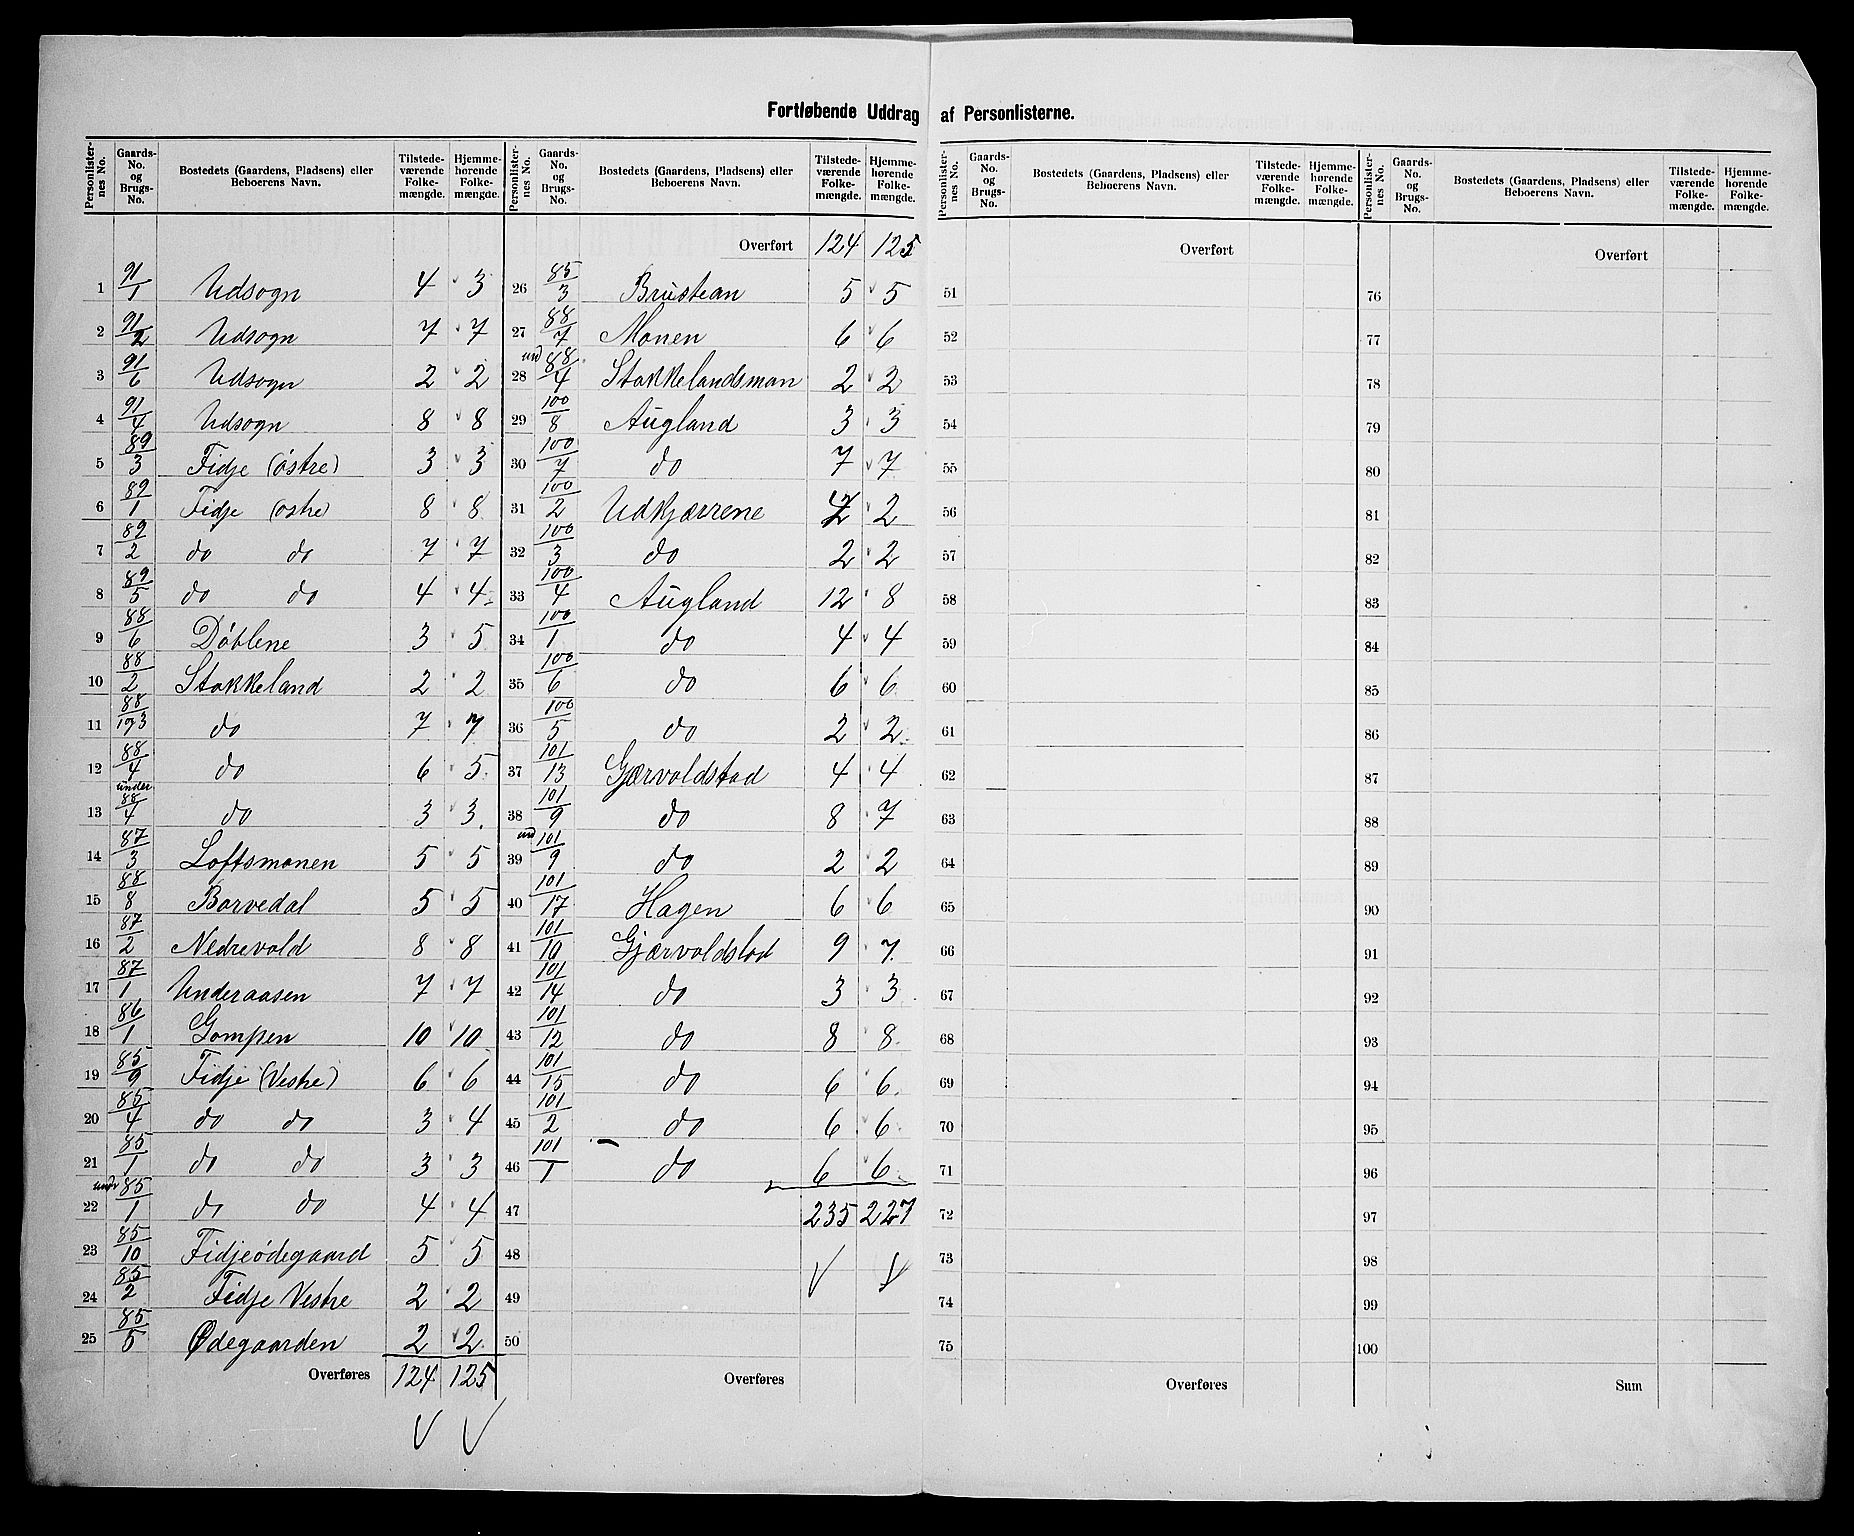 Fortløbende Uddrag af Personlisterne.
Personlisternes No. | Gaards-No. og Brugs-No. | Bostedets (Gaardens, Pladsens) eller Beboerens Navn. | Tilstedeværende Folkemængde. | Hjemmehørende Folkemængde.
1 91/1 Udsogn 4 3
2 91/2 Udsogn 7 7
3 91/6 Udsogn 2 2
4 91/4 Udsogn 8 8
5 89/3 Fidje (østre) 3 3
6 89/1 Fidje (østre) 8 8
7 89/2 do do 7 7
8 89/5 do do 4 4
9 88/6 Døblene 3 5
10 88/2 Stakkeland 2 2
11 88/1 og 3 do 7 7
12 88/4 do 6 5
13 under 88/4 do 3 3
14 87/3 Loftsmonen 5 5
15 88/8 Barvedal 5 5
16 87/2 Nedrevold 8 8
17 87/1 Underaasen 7 7
18 86/1 Gompen 10 10
19 85/9 Fidje (Vestre) 6 6
20 85/4 do do 3 4
21 85/1 do do 3 3
22 under 85/1 do do 4 4
23 85/10 Fidjeødegaard 5 5
24 85/2 Fidje Vestre 2 2
25 85/5 Ødegaarden 2 2
Overføres 124 125
Personlisternes No. | Gaards-No. og Brugs-No. | Bostedets (Gaardens, Pladsens) eller Beboerens Navn. | Tilstedeværende Folkemængde. | Hjemmehørende Folkemængde.
Overført 124 125
26 85/3 Brustean 5 5
27 88/7 Monen 6 6
28 und 88/4 Stakkelandsmon 2 2
29 100/8 Augland 3 3
30 100/7 do 7 7
31 100/2 Udkjærrene 2 2
32 100/3 do 2 2
33 100/4 Augland 12 8
34 100/1 do 4 4
35 100/6 do 6 6
36 100/5 do 2 2
37 101/13 Gjærvoldstad 4 4
38 101/9 do 8 7
39 und 101/9 do 2 2
40 101/17 Hagen 6 6
41 101/10 Gjærvoldstad 9 7
42 101/14 do 3 3
43 101/12 do 8 8
44 101/15 do 6 6
45 101/2 do 6 6
46 101/1 do 6 6
47 235 227
48
49
50
Overføres
Personlisternes No. | Gaards-No. og Brugs-No. | Bostedets (Gaardens, Pladsens) eller Beboerens Navn. | Tilstedeværende Folkemængde. | Hjemmehørende Folkemængde.
Overført
51
52
53
54
55
56
57
58
59
60
61
62
63
64
65
66
67
68
69
70
71
72
73
74
75
Overføres
Personlisternes No. | Gaards-No. og Brugs-No. | Bostedets (Gaardens, Pladsens) eller Beboerens Navn. | Tilstedeværende Folkemængde. | Hjemmehørende Folkemængde.
Overført
76
77
78
79
80
81
82
83
84
85
86
87
88
89
90
91
92
93
94
95
96
97
98
99
100
Sum